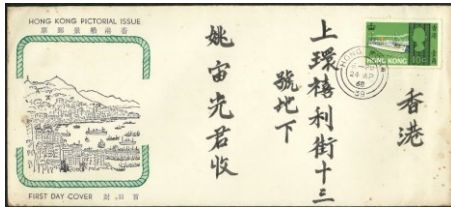 HONG KONG PICTORIAL ISSUE
FIRST DAY COVER 封日首
HONG KONG
10c
24 AP
68
香港
上環禧利街十三
號地下
姚宙光君收